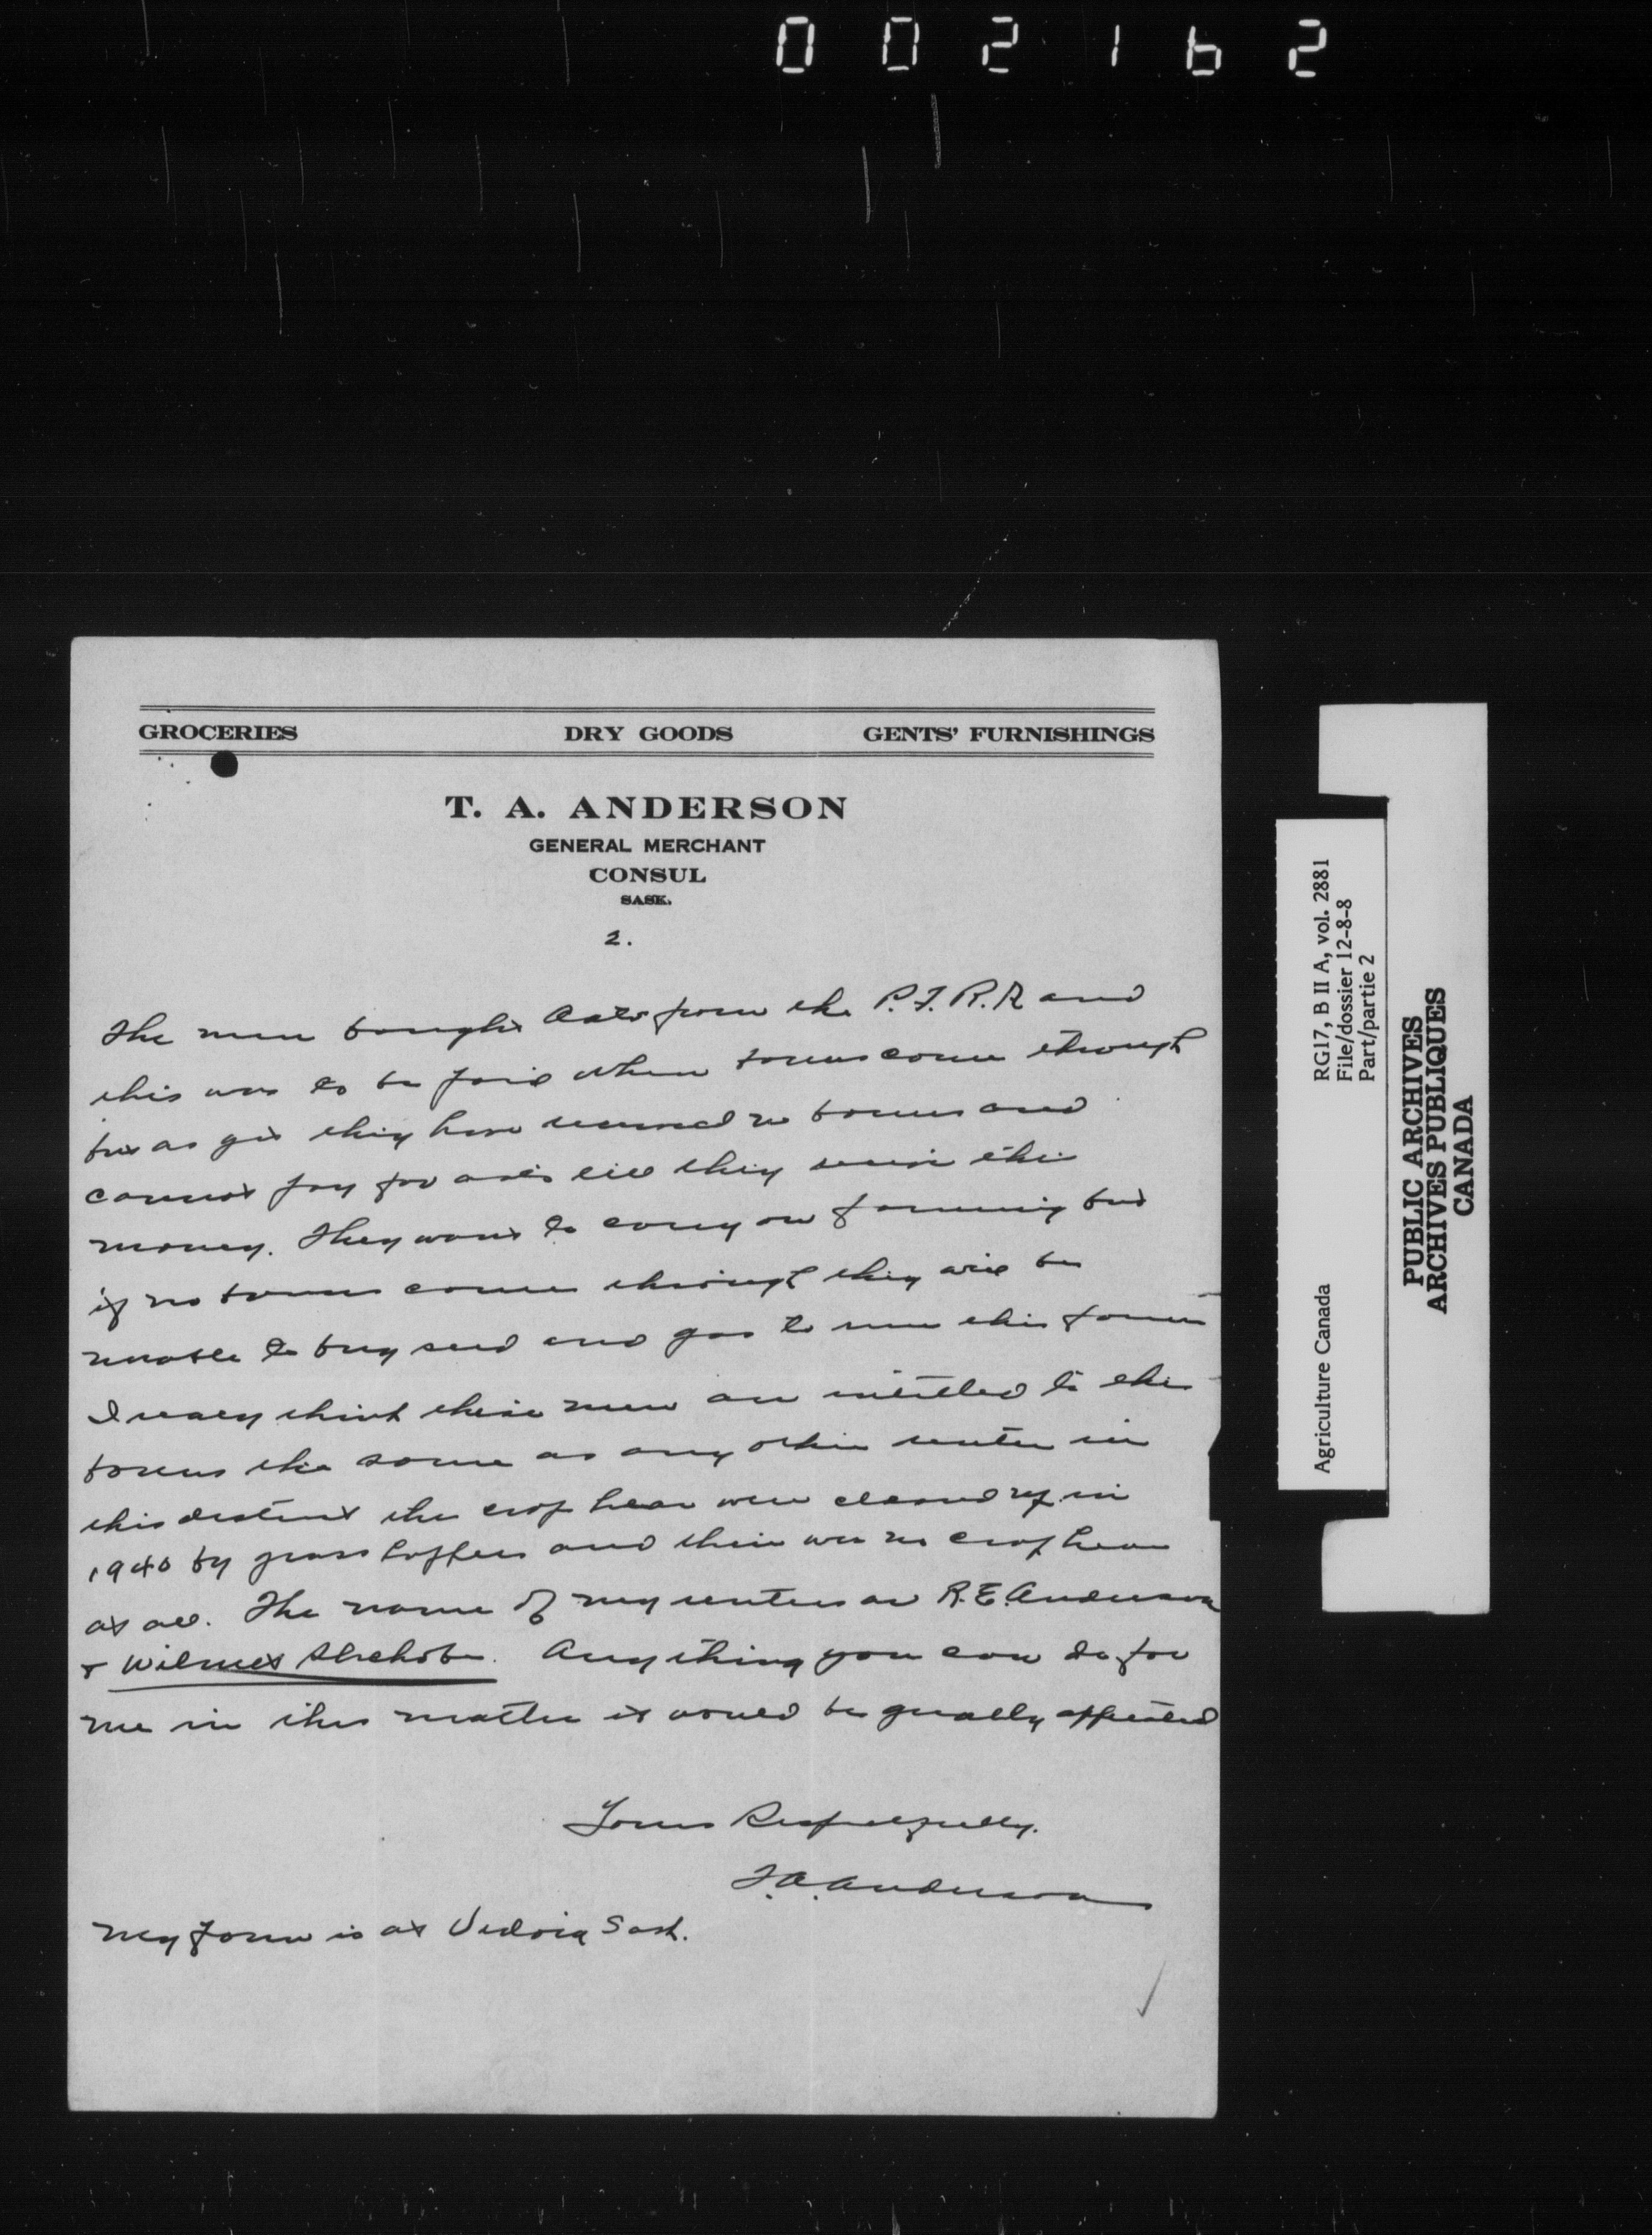 002162
GROCERIES DRY GOODS GENTS' FURNISHINGS
T. A. ANDERSON
GENERAL MERCHANT
CONSUL
SASK.
2.
The men bought oats from the P.F.R.R and
this was to be paid when bonus come through
but as yet they have received no bonus and
cannot pay for oats till they receive the
money. They want to carry on farming but
if no bonus comes through they will be
unable to buy seed and gas to run this farm
I realy think these men are intitled to the
bonus the same as any other renter in
this district the crop hear were cleaned up in
1940 by grass hoppers and there was no crop hear
at all. The name of my renters are R.E. Anderson
& Wilmer. Anything you can do for
me in this matter it would be greatly
Yours Respectfully.
T.A. Anderson
My farm is at Vidora Sask.
RG17, B II A, vol. 2881
File/dossier 12-8-8
Part/partie 2
Agriculture Canada
PUBLIC ARCHIVES
ARCHIVES PUBLIQUES
CANADA